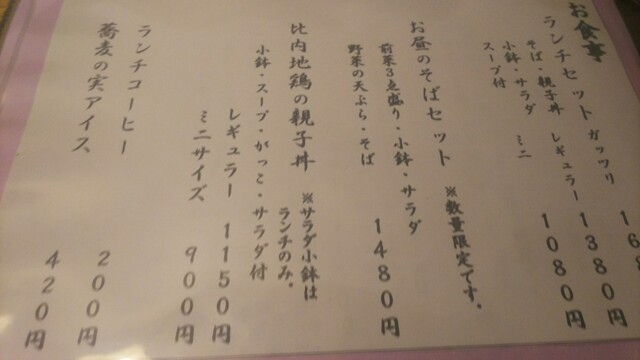 お食事
ランチセット ガッツリ 168
そば・親子丼 レギュラー 1380円
小鉢・サラダ ミニ 1080円
スープ付
お昼のそばセット ※数量限定です。
前菜3点盛り・小鉢・サラダ
野菜の天ぷら・そば 1480円
比内地鶏の親子丼 ※サラダ小鉢は
ランチのみ。
小鉢・スープ・がっこ・サラダ付
レギュラー 1150円
ミニサイズ 900円
ランチコーヒー 200円
蕎麦の実アイス 420円